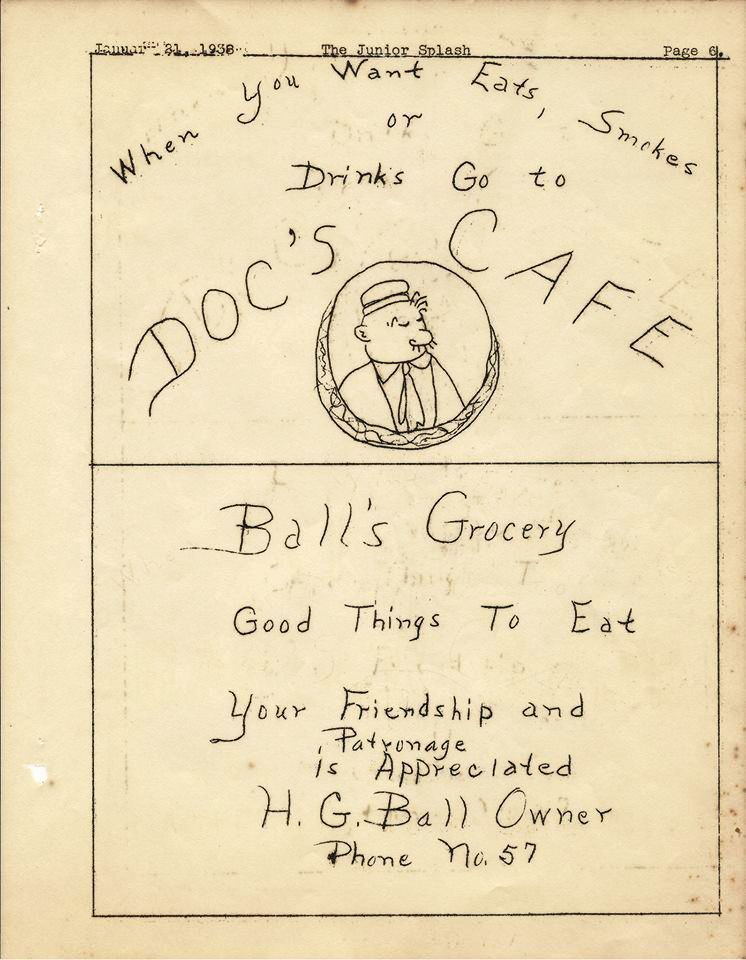 January 31, 1938 The Junior Splash Page 6.
When you Want Eats, Smokes
or
Drinks Go to
DOC'S CAFE
Ball's Grocery
Good Things To Eat
Your Friendship and
Patronage
is Appreciated
H. G. Ball Owner
Phone No. 57